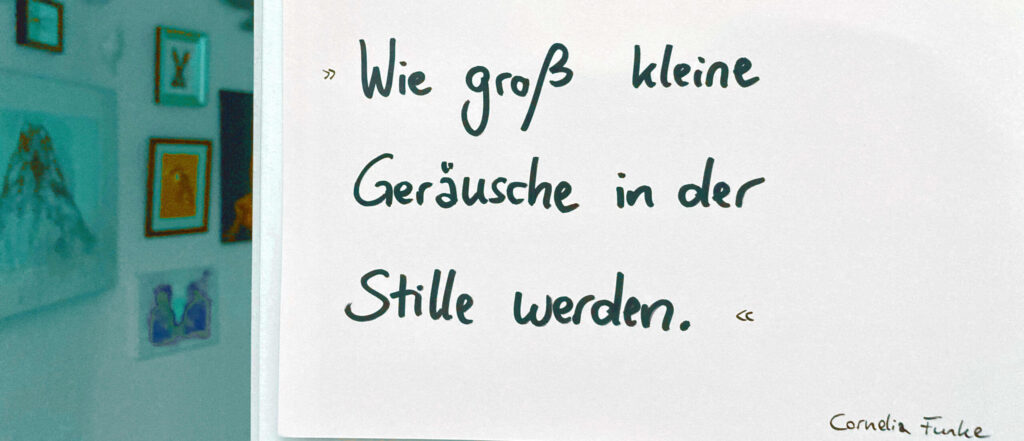 » Wie groß kleine
Geräusche in der
Stille werden. «
Cornelia Funke